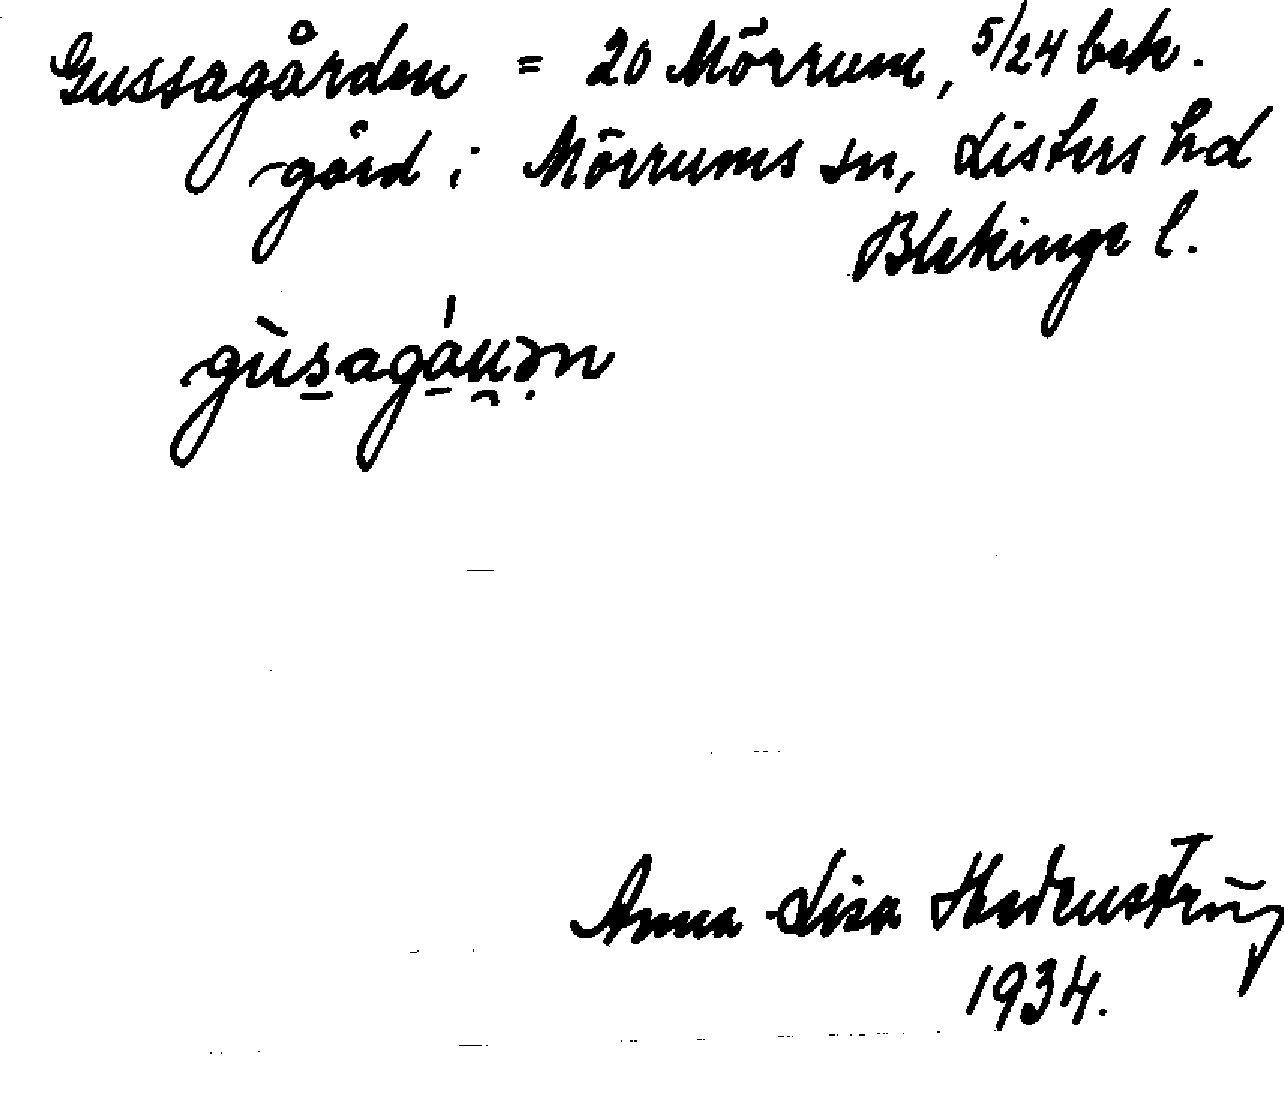 Gussagården = 20 Mörrum, 5/24 bek.
gård i Mörrums sn, Listers hd
Blekinge l.
Anna-Lisa
1934.